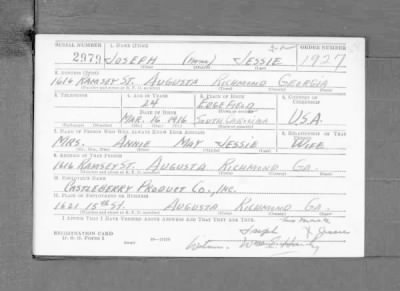 SERIAL NUMBER 1. NAME (Print) ORDER NUMBER
2979 JOSEPH (none) JESSIE 1927
(First) (Middle) (Last)
2. ADDRESS (Print)
1616 RAMSEY ST. AUGUSTA RICHMOND GEORGIA
3. TELEPHONE 4. AGE IN YEARS 5. PLACE OF BIRTH 6. COUNTRY OF CITIZENSHIP
24 EDGEFIELD
DATE OF BIRTH
MAR. 16 1916 SOUTH CAROLINA U.S.A.
7. NAME OF PERSON WHO WILL ALWAYS KNOW YOUR ADDRESS 8. RELATIONSHIP OF THAT PERSON
MRS. ANNIE MAY JESSIE WIFE
9. ADDRESS OF THAT PERSON
1616 RAMSEY ST. AUGUSTA RICHMOND GA.
10. EMPLOYER'S NAME
CASTLEBERRY PRODUCT CO., INC.
11. PLACE OF EMPLOYMENT OR BUSINESS
1621 15TH ST. AUGUSTA RICHMOND GA.
I AFFIRM THAT I HAVE VERIFIED ABOVE ANSWERS AND THAT THEY ARE TRUE.
REGISTRATION CARD Joseph X Jessie
D. S. S. Form 1 Witness: